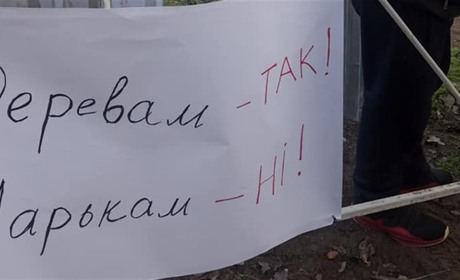 Деревам – ТАК!
Ларькам – НІ!